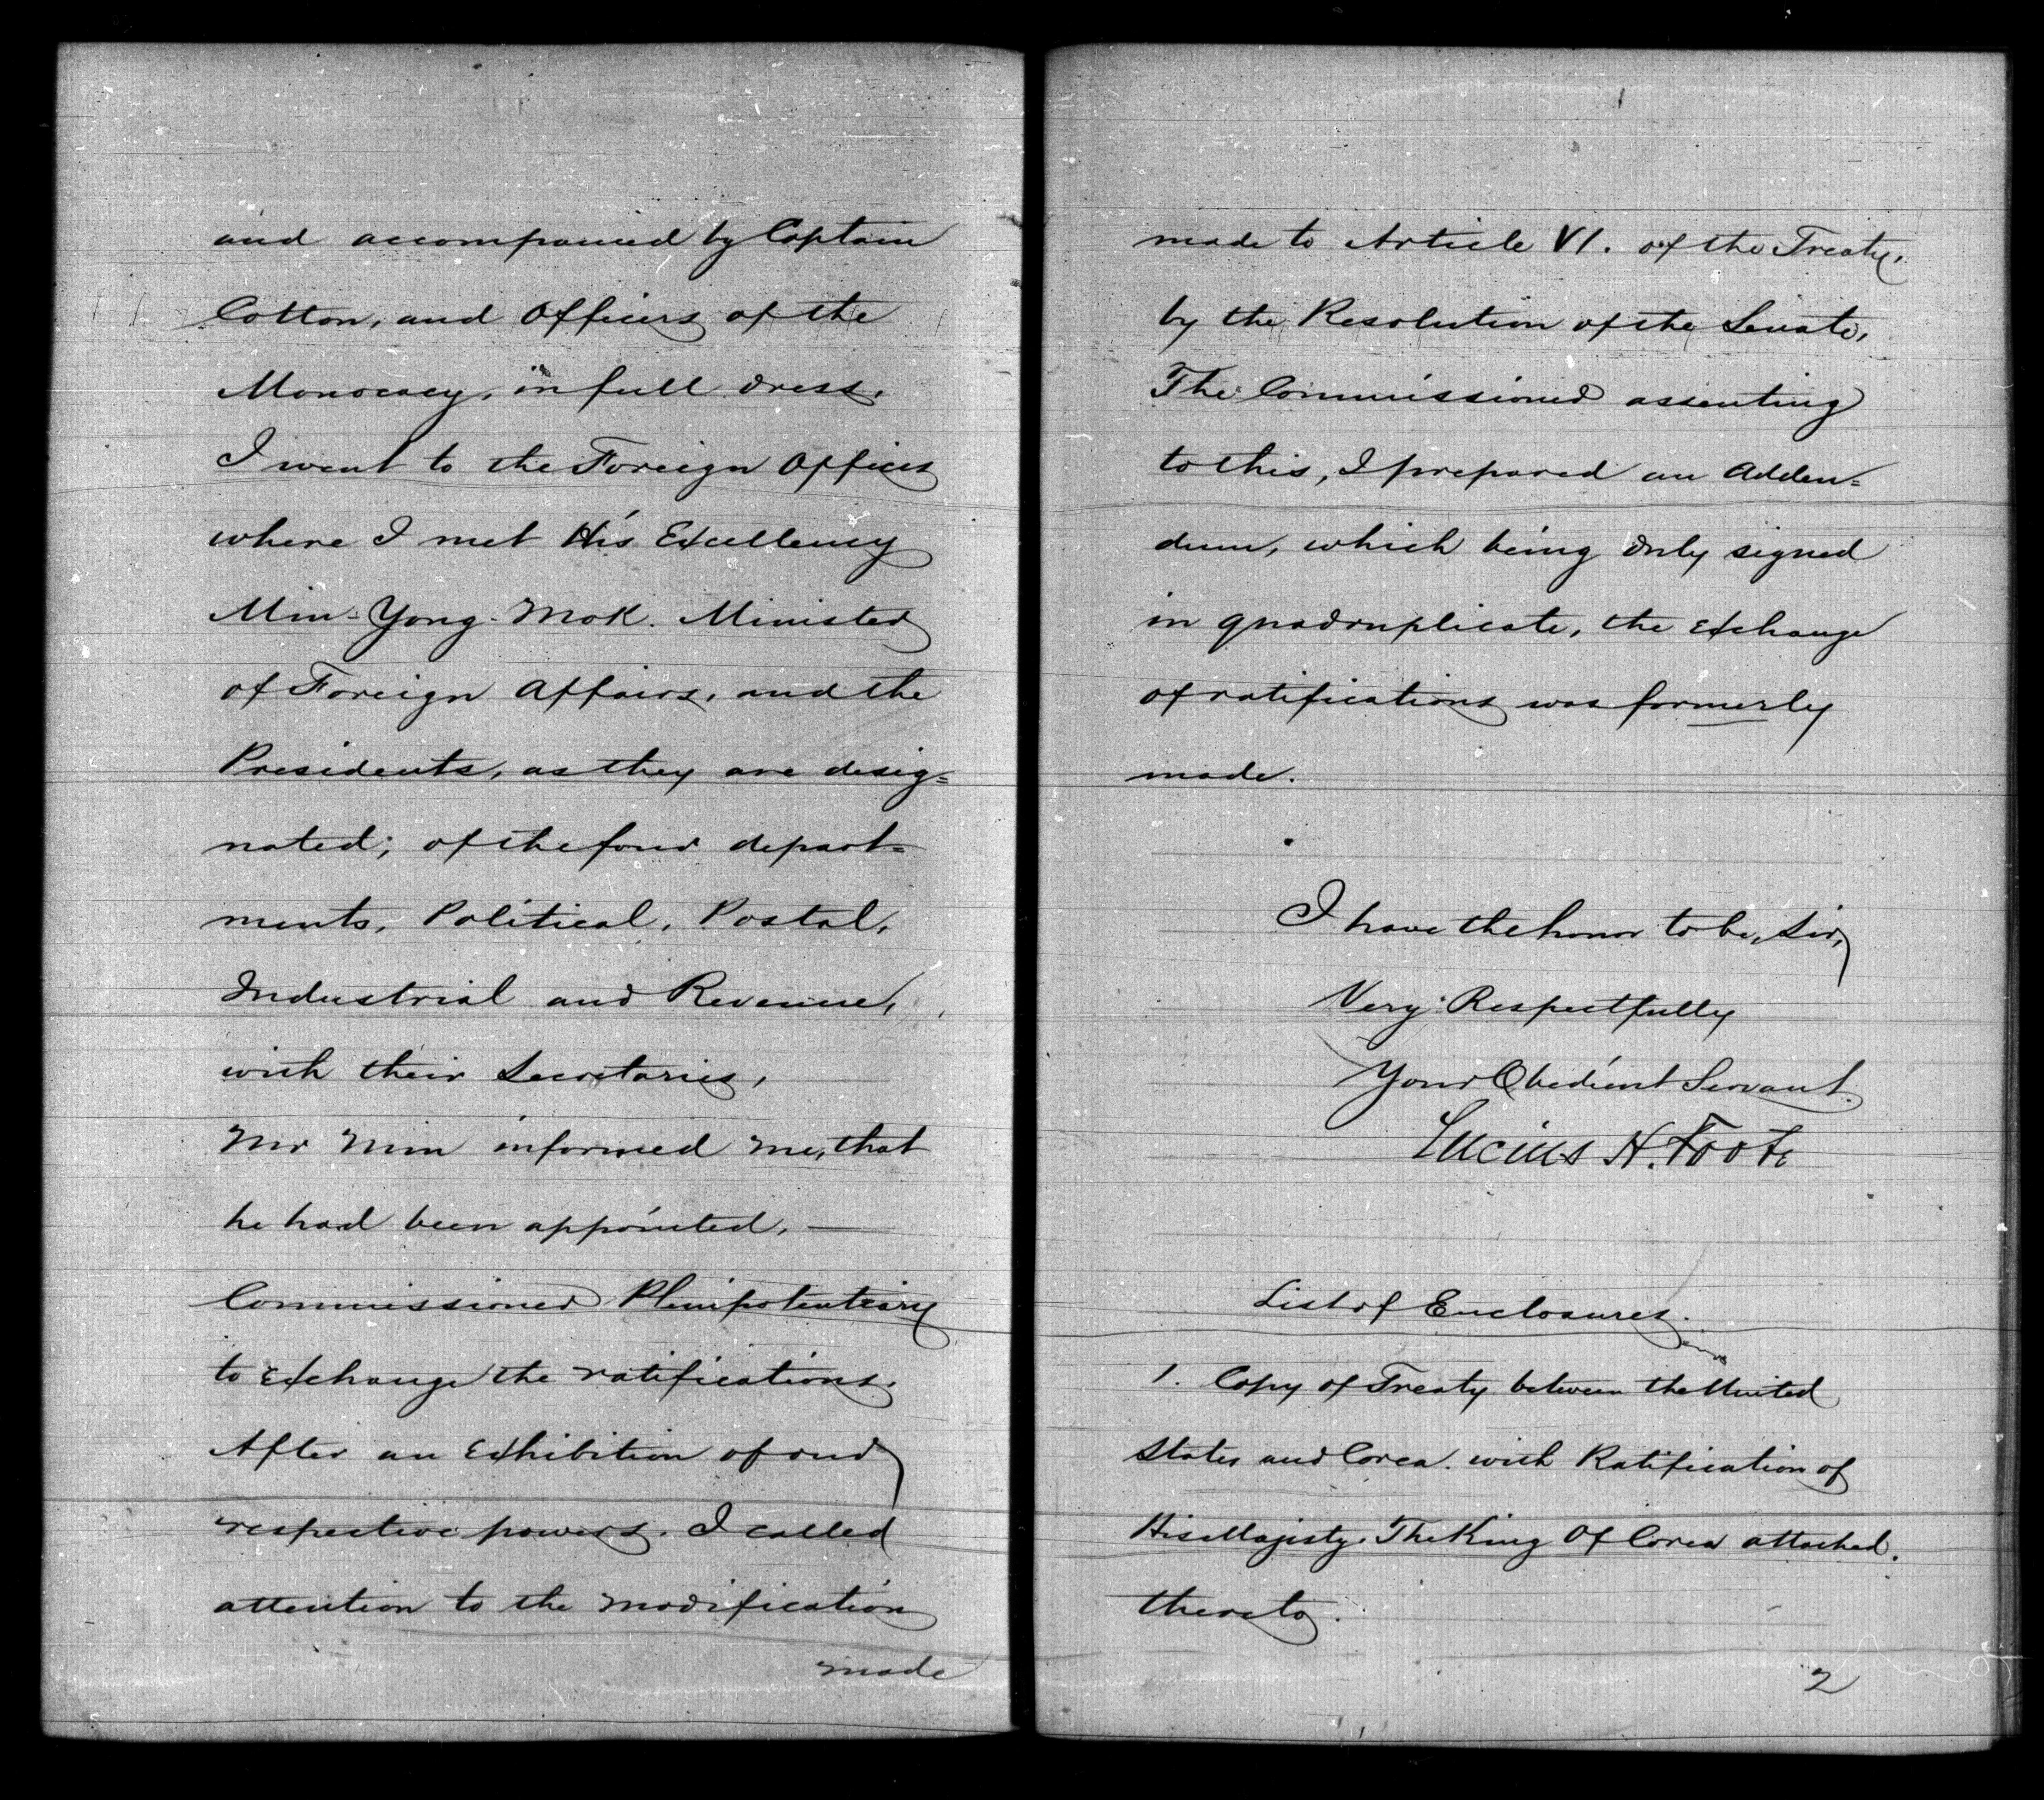 and accompanied by Captain
Cotton, and Officers of the
Monocacy, in full dress.
I went to the Foreign Office
where I met His Excellency
Min-Yong-Mok. Minister
of Foreign Affairs, and the
Presidents, as they are desig=
nated; of the four depart=
ments, Political, Postal,
Industrial and Revenue,
with their Secretaries,
Mr Min informed me, that
he had been appointed, —
Commissioner Plenipotentiary
to exchange the ratifications.
After an Exhibition of our
respective powers. I called
attention to the modification
made
made to Article VI. of the Treaty,
by the Resolution of the Senate,
The Commissioner assenting
to this, I prepared an Adden=
dum, which being duly signed
in quadruplicate, the exchange
of ratifications was formerly
made.
I have the honor to be, Sir,
Very Respectfully
Your Obedient Servant.
Lucius H. Foote
List of Enclosures.
1. Copy of Treaty between the United
States and Corea. with Ratification of
His Majesty. The King Of Corea attached.
thereto.
2